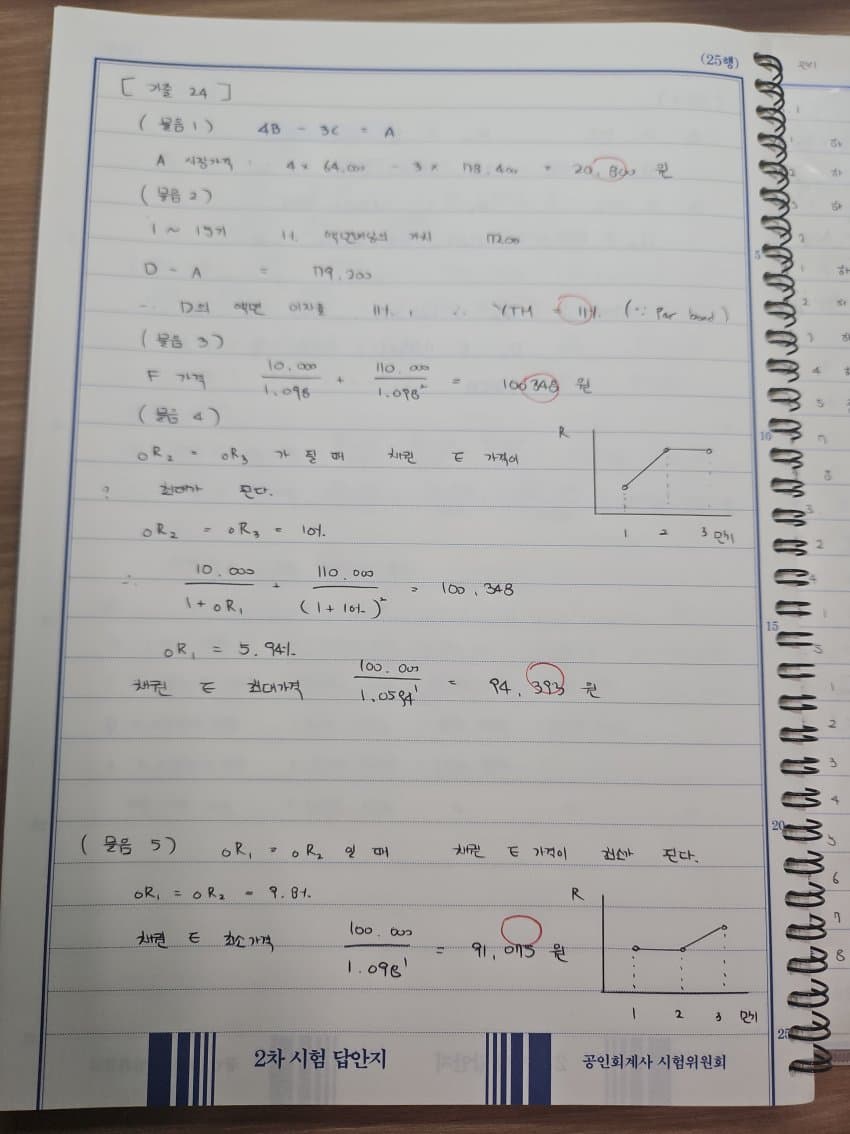 (25행)
[ 기출 24 ]
( 물음 1 ) 4B - 3C = A
A 시장가격 : 4 × 64,000 - 3 × 78,400 = 20,800 원
( 물음 2 )
1 ~ 15기 1%
D - A = 79,200
D의 액면 이자율 11%, ∴ YTM = 11% (∵ Par bond)
( 물음 3 )
F 가격 10,000 / 1.098 + 110,000 / 1.098² = 100348 원
( 물음 4 )
₀R₂ = ₀R₃ 가 될 때 채권 E 가격이
? 최대가 된다.
R
1 2 3 만기
₀R₂ = ₀R₃ = 10%
∴ 10,000 / 1 + ₀R₁ + 110,000 / (1 + 10%)² = 100,348
₀R₁ = 5.94%
채권 E 최대가격 100,000 / 1.0594¹ = 94,393 원
( 물음 5 ) ₀R₁ = ₀R₂ 일 때 채권 E 가격이 최소가 된다.
₀R₁ = ₀R₂ = 9.8%
채권 E 최소가격 100,000 / 1.098¹ = 91,075 원
R
1 2 3 만기
5
10
15
20
25
2차 시험 답안지
공인회계사 시험위원회